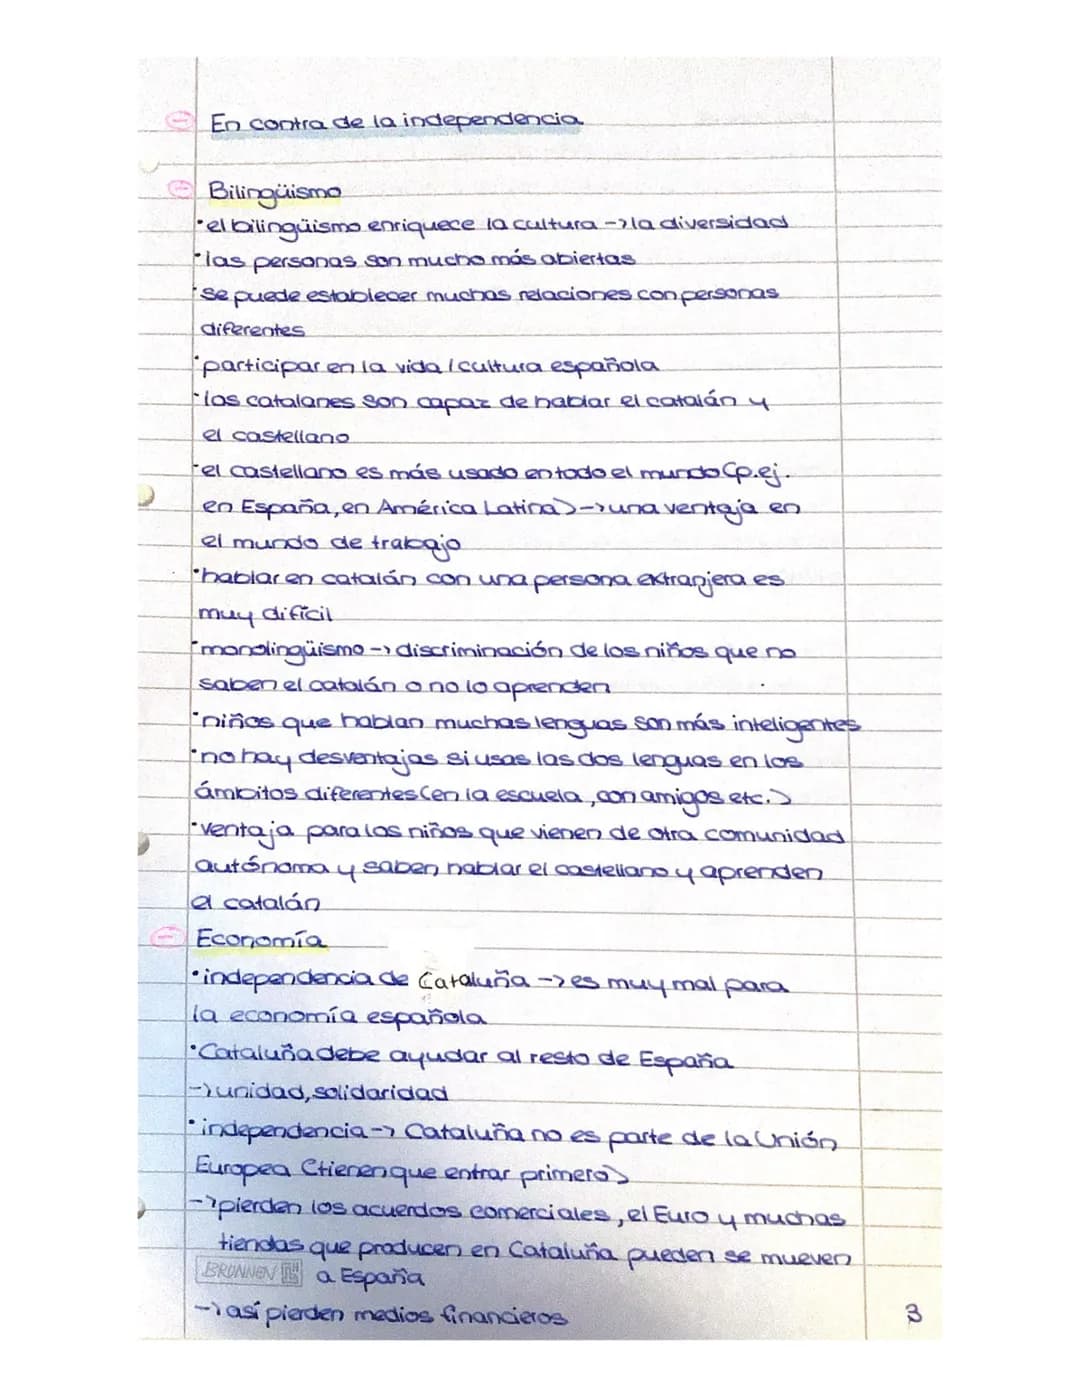 ⊖ En contra de la independencia
⊖ Bilingüismo
•el bilingüismo enriquece la cultura -> la diversidad
•las personas son mucho más abiertas
•se puede establecer muchas relaciones con personas
diferentes
•participar en la vida / cultura española
•los catalanes son capaz de hablar el catalán y
el castellano
•el castellano es más usado en todo el mundo (p.ej.
en España, en América Latina) -> una ventaja en
el mundo de trabajo
•hablar en catalán con una persona extranjera es
muy difícil
•monolingüismo -> discriminación de los niños que no
saben el catalán o no lo aprenden
•niños que hablan muchas lenguas son más inteligentes
•no hay desventajas si usas las dos lenguas en los
ámbitos diferentes (en la escuela, con amigos etc.)
•ventaja para los niños que vienen de otra comunidad
autónoma y saben hablar el castellano y aprenden
el catalán
⊖ Economía
•independencia de Cataluña -> es muy mal para
la economía española
•Cataluña debe ayudar al resto de España
-> unidad, solidaridad
•independencia -> Cataluña no es parte de la Unión
Europea (tienen que entrar primero)
-> pierden los acuerdos comerciales, el Euro y muchas
tiendas que producen en Cataluña pueden se mueven
BRUNNEN a España
-> así pierden medios financieros
3